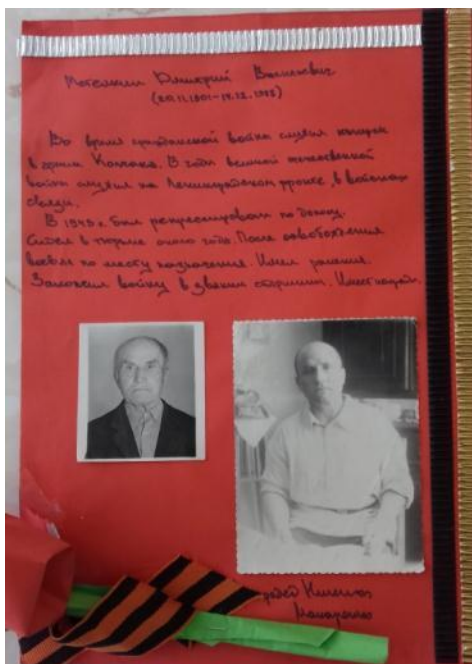 Дмитрий Васильевич
Во время гражданской войны служил
в армии Колчака. В годы великой отечественной
войны служил на Ленинградском фронте, в войсках
связи.
В 1943г. был репрессирован по доносу.
Сидел в тюрьме около года. После освобождения
воевал по месту назначения. Имел ранения.
Закончил войну в звании старшины. Имел
прадед
Макаренко